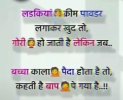 लडकियां क्रीम पावडर
लगाकर खुद तो,
गोरी हो जाती है लेकिन जब..
बच्चा काला पैदा होता है तो,
कहती है बाप पे गया है..!!